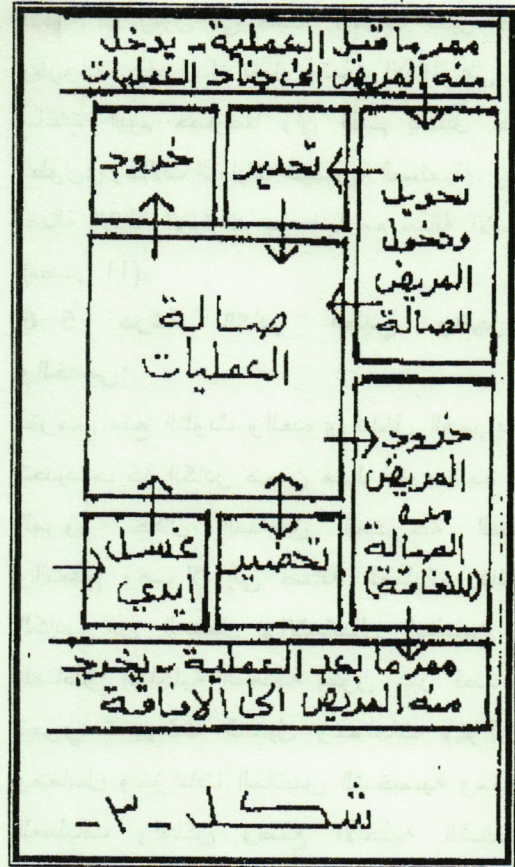 ممر ما قبل العملية - يدخل
منه المريض الى جناح العمليات
تحويل
ودخول
المريض
للصالة
تخدير
خروج
صالة
العمليات
خروج
المريض
من
الصالة
(للافاقة)
تحضير
غسل
ايدي
ممر ما بعد العملية - يخرج
منه المريض الى الافاقة
شكل - ٣ -